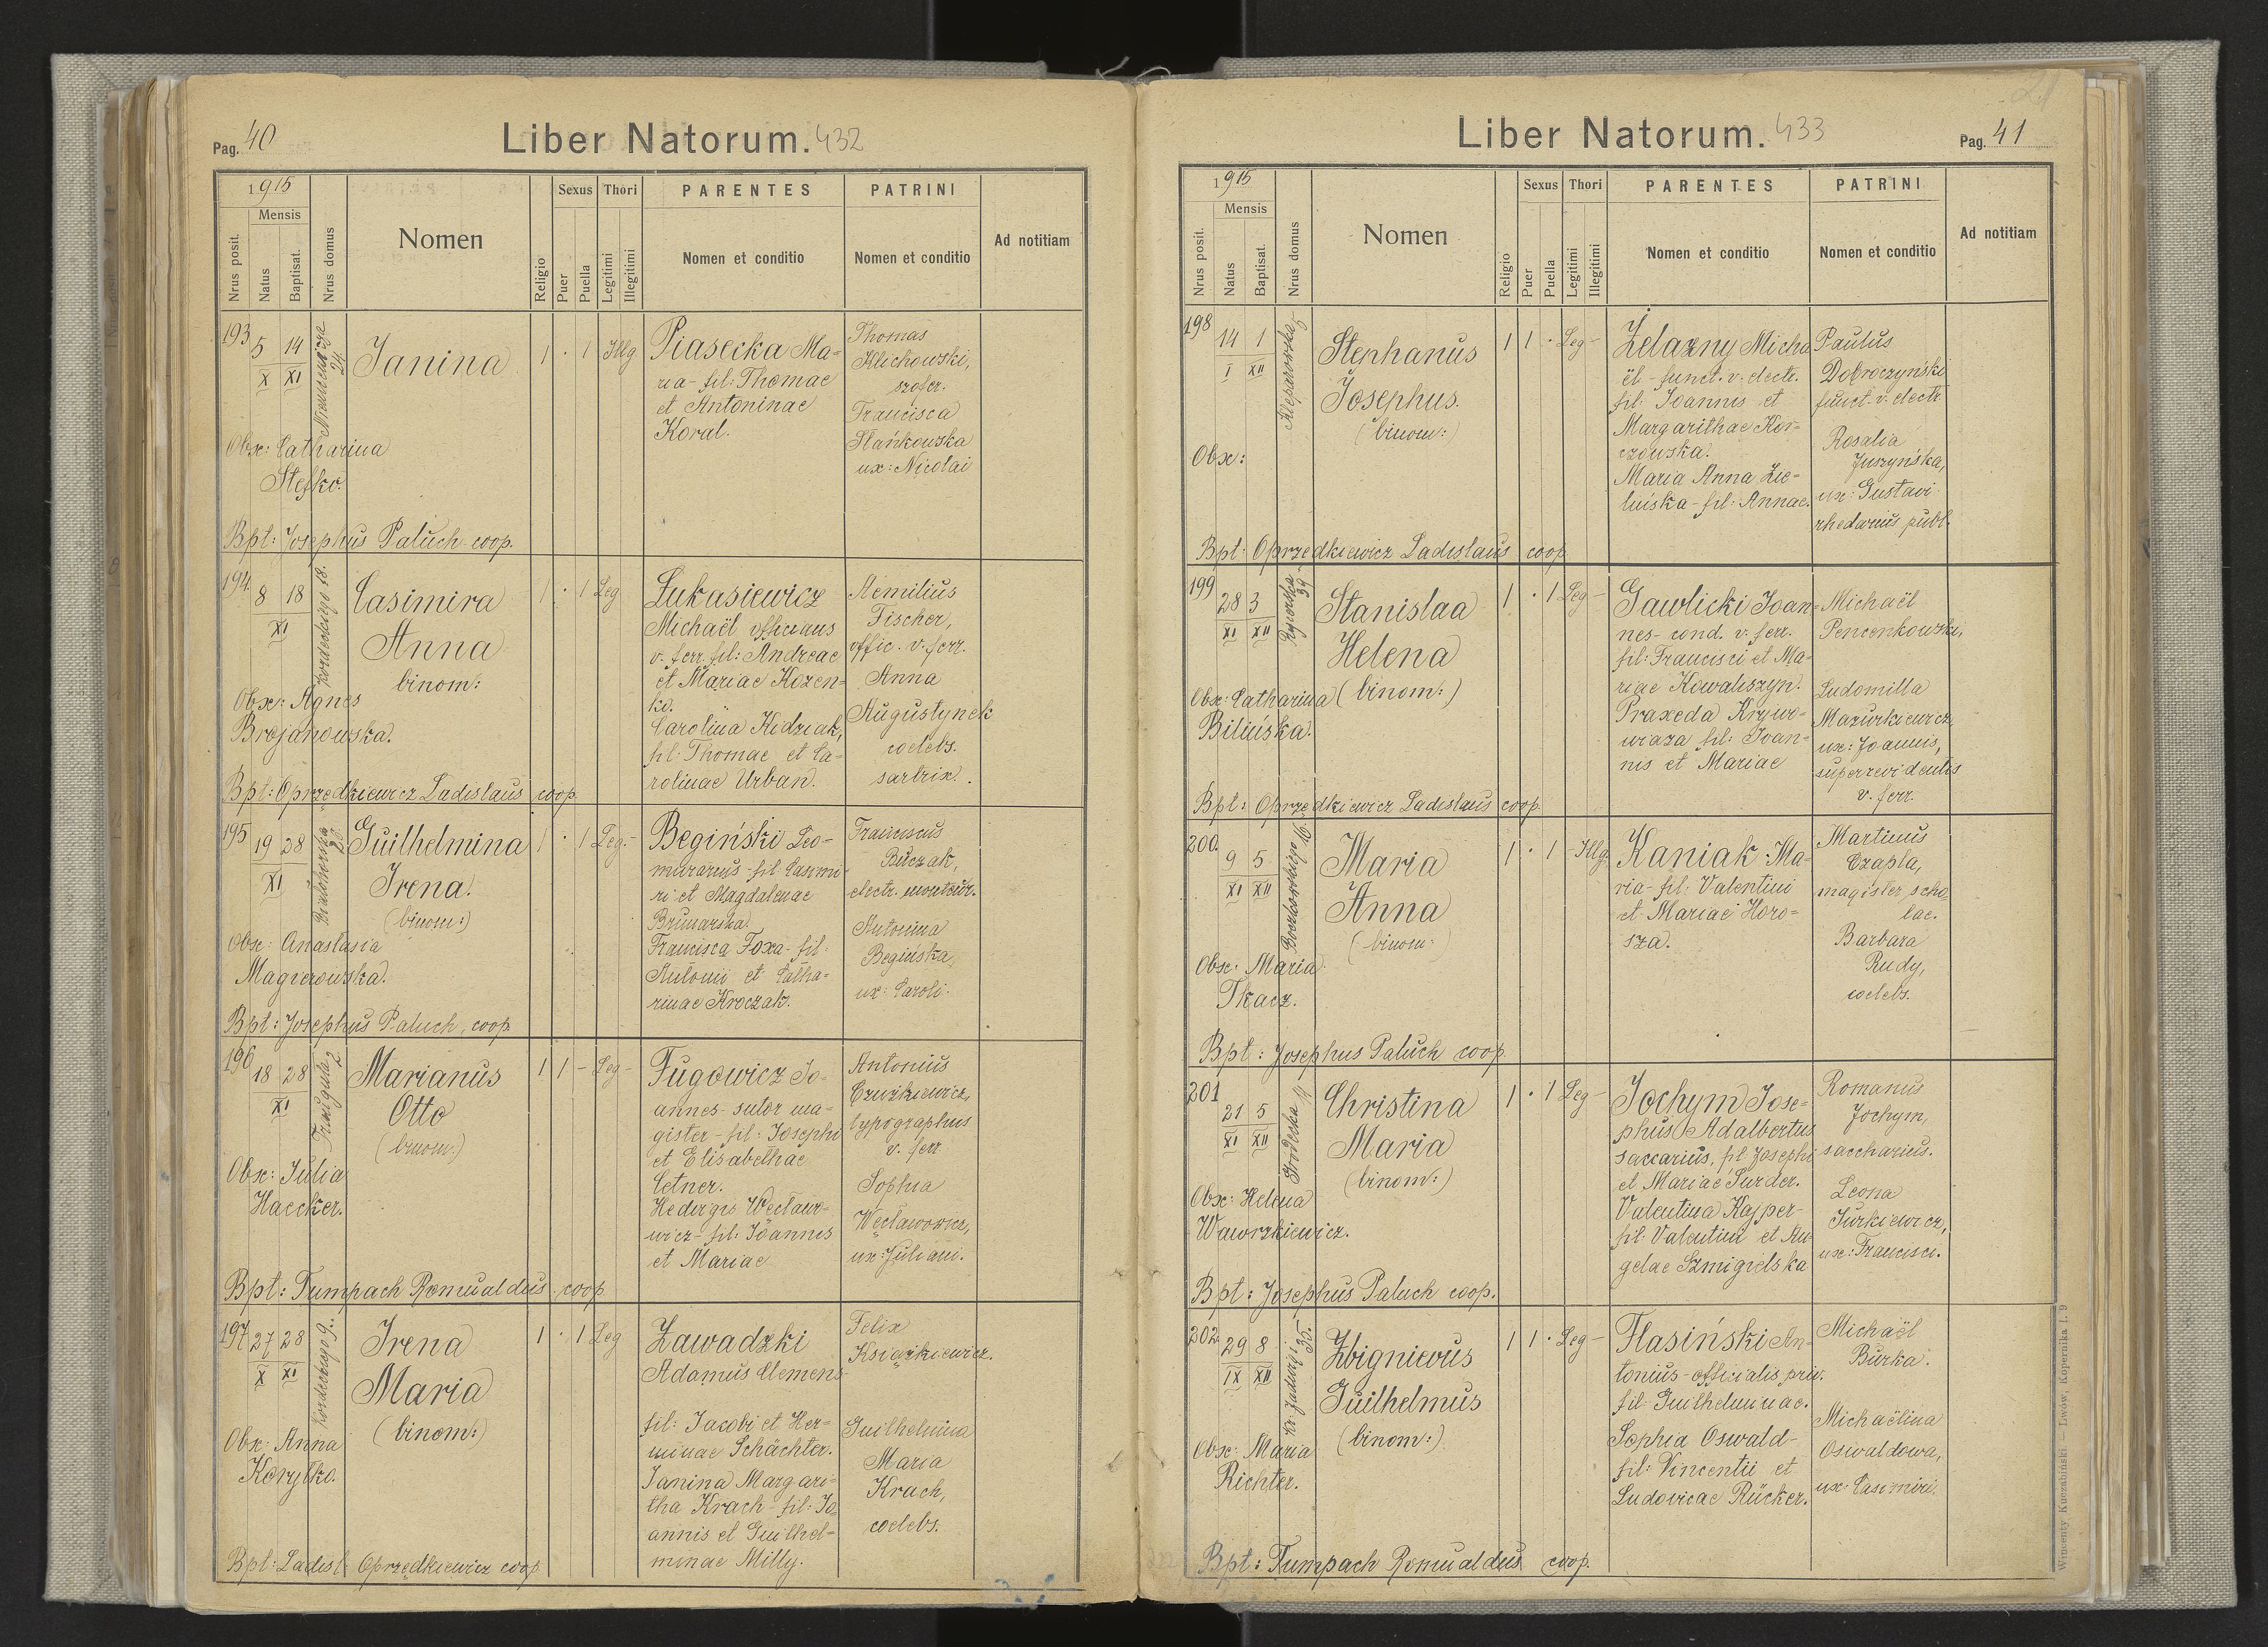 Pag. 40
Liber Natorum. 432
1915
Mensis
Nrus posit.
Natus
Baptisat.
Nrus domus
Nomen
Religio
Sexus
Puer
Puella
Thori
Legitimi
Illegitimi
PARENTES
Nomen et conditio
PATRINI
Nomen et conditio
Ad notitiam
193
5 14
X XI
24
Janina
1 · 1 Illg.
Piasecka Ma-
ria - fil: Thomae
et Antoninae
Koral.
Thomas
Klichowski,
szofer.
Francisca
Stańkowska
ux: Nicolai
Obx: Catharina
Stefko.
Bpt: Josephus Paluch coop.
194.
8 18
XI
Kordeckiego 18.
Casimira
Anna
binom:
1 · 1 Leg
Łukasiewicz
Michaël officians
v. ferr. fil: Andreae
et Mariae Kozen-
ko.
Carolina Kidziak,
fil: Thomae et Ca-
rolinae Urban.
Aemilius
Fischer,
offic. v. ferr.
Anna
Augustynek
coelebs.
sartrix.
Obx: Agnes
Brejanowska.
Bpt: Oprzędkiewicz Ladislaus coop.
195
19 28
XI
Guilhelmina
Irena.
(binom:)
1 · 1 Leg.-
Begiński Leo-
murarius - fil Casimi-
ri et Magdalenae
Brunarska.
Francisca Foxa - fil:
Antonii et Catha-
rinae Kroczak.
Franciscus
Buczak,
electr. monteur.
Antonina
Begińska,
ux: Caroli.
Obx: Anastasia
Magierowska.
Bpt: Josephus Paluch, coop.
196
18 28
XI
Traugutta 2
Marianus
Otto
(binom:)
1 1 - Leg -
Fugowicz Jo-
annes - sutor ma-
gister - fil: Josephi
et Elisabethae
Cetner.
Hedvigis Węcław-
wicz - fil: Joannis
et Mariae
Antonius
typographus
v. ferr
Sophia
Węcławowicz,
ux: Juliani.
Obx: Julia
Haecker.
Bpt: Tumpach Romualdus coop
197
27 28
X XI
Kordeckiego 9.
Irena
Maria
(binom:)
1 · 1 Leg
Zawadzki
Adamus Clemens
fil: Jacobi et Her-
minae Schächter.
Janina Margari-
tha Krach - fil: Jo-
annis et Guilhel-
minae Milly.
Felix
Książkiewicz.
Guilhelmina
Maria
Krach,
coelebs.
Obx: Anna
Korytko.
Bpt: Ladisl. Oprzędkiewicz coop.
Liber Natorum. 433
Pag. 41
1915
Mensis
Nrus posit.
Natus
Baptisat.
Nrus domus
Nomen
Religio
Sexus
Puer
Puella
Thori
Legitimi
Illegitimi
PARENTES
Nomen et conditio
PATRINI
Nomen et conditio
Ad notitiam
198
14 1
I XII
Kleparowska
Stephanus
Josephus.
(binom:)
1 1 · Leg -
Żelazny Micha
ël - funct. v. electr.
fil: Joannis et
Margarithae Kor-
czowska.
Maria Anna Zie-
lińska - fil: Annae.
Paulus
Dobroczyński
funct. v. electr.
Rosalia
Juszyńska,
ux: Gustavi
rhedarius publ.
Obx:
Bpt: Oprzędkiewicz Ladislaus coop
199
28 3
XI XII
39
Stanislaa
Helena
(binom:)
1 · 1 Leg -
Gawlicki Joan-
nes - cond. v. ferr.
fil: Francisci et Ma-
riae Kowaliszyn.
Praxeda Krywo-
wiaza fil: Joan-
nis et Mariae
Michaël
Pencenkowski,
Ludomilla
Mazurkiewicz,
ux: Joannis,
superrevidentis
v. ferr.
Obx: Catharina
Bilińska.
Bpt: Oprzędkiewicz Ladislaus coop.
200.
9 5
XI XII
Boczkowskiego 16.
Maria
Anna
(binom:
1 · 1 - Illg.
Kaniak Ma-
ria - fil: Valentini
et Mariae Horo-
sza.
Martinus
Czapla,
magister scho-
lae.
Barbara
Rudy,
coelebs.
Obx: Maria
Tkacz.
Bpt: Josephus Paluch coop
201
21 5
XI XII
Gródecka
Christina
Maria
(binom:)
1 · 1 Leg -
Jochym Jose-
phus Adalbertus
saccarius, fil Josephi
et Mariae Surder.
Valentina Kajper-
fil: Valentini et An-
gelae Szmigielska
Romanus
Jochym,
saccharius.
Leona
Jurkiewicz,
ux: Francisci.
Obx: Helena
Wawrzkiewicz.
Bpt: Josephus Paluch coop.
202.
29 8
IX XII
Kr. Jadwigi 35.
Zbignievus
Guilhelmus
(binom:)
1 1 · Leg -
Flasiński An-
tonius - officialis priv.
fil: Guilhelminae.
Sophia Oswald -
fil: Vincentii et
Ludovicae Rücker.
Michaël
Burka.
Michaëlina
Oswaldowa,
ux: Casimiri.
Obx: Maria
Richter.
Bpt: Tumpach Romualdus coop.
Wincenty Kuczabiński – Lwów, Kopernika l. 9